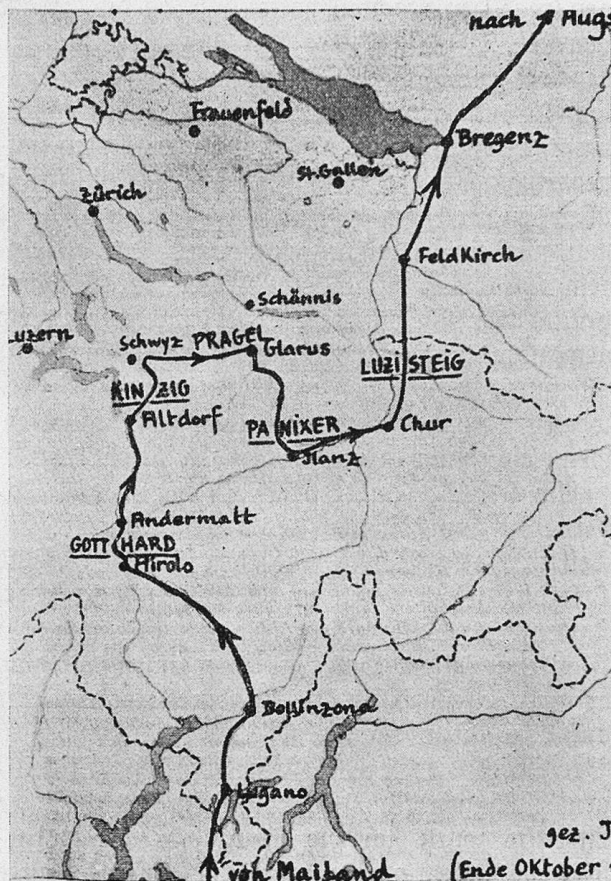 nach Augs
Frauenfeld
Bregenz
St. Gallen
Zürich
FeldKirch
Schännis
Luzern
Schwyz PRAGEL
Glarus
LUZI STEIG
KINZIG
Altdorf
PANIXER
Chur
Ilanz
Andermatt
GOTTHARD
Airolo
Bellinzona
Lugano
gez. J
von Mailand
(Ende Oktober